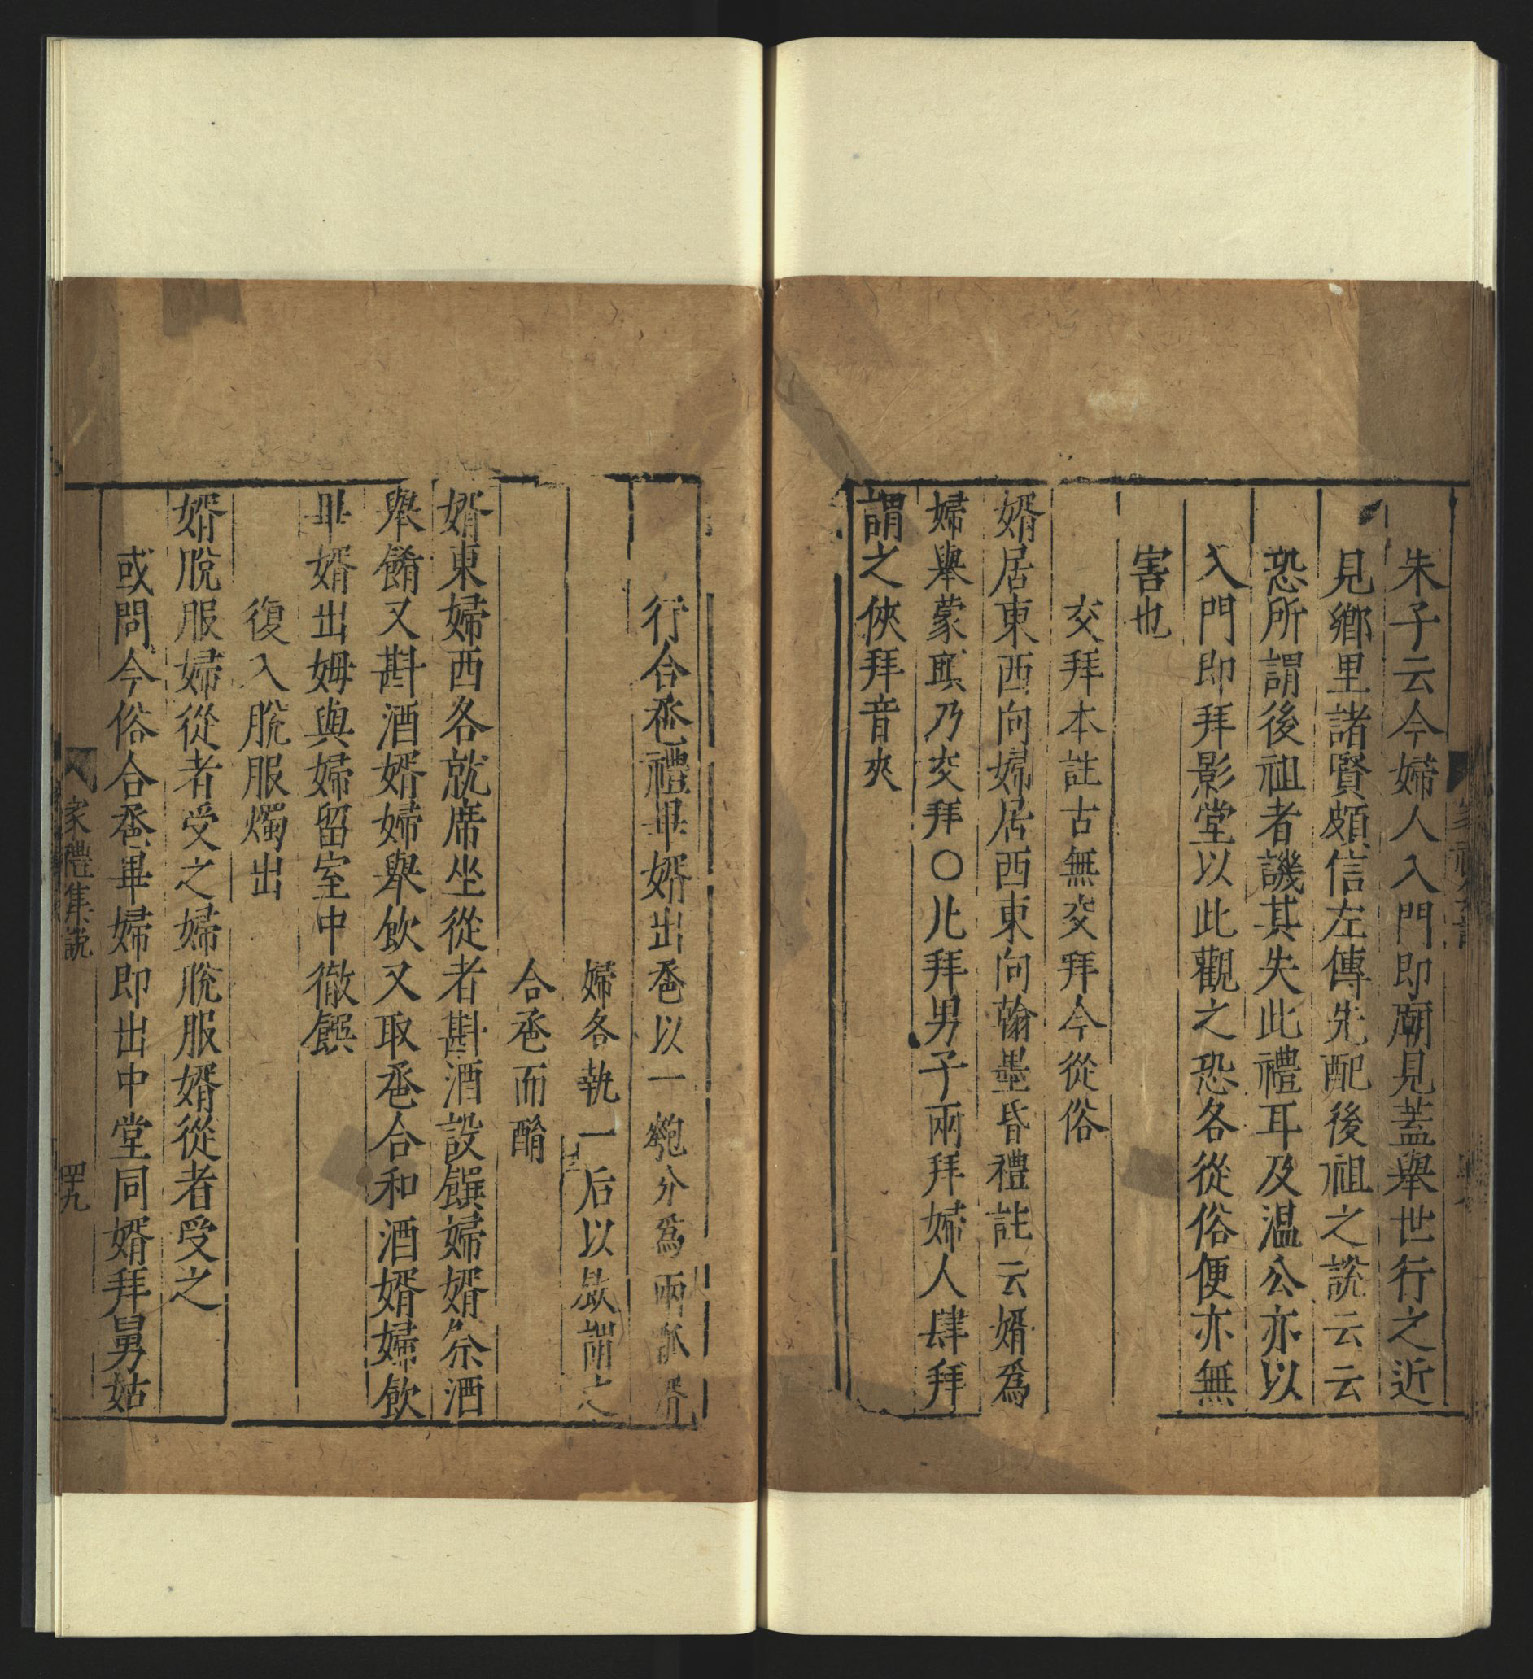 朱子云今婦人入門即廟見蓋舉世行之近
見鄉里諸賢頗信左傳先配後祖之說云云
恐所謂後祖者譏其失此禮耳及溫公亦以
入門即拜影堂以此觀之恐各從俗便亦無
害也
交拜本註古無交拜今從俗
婿居東西向婦居西東向翰墨昏禮註云婿爲
婦舉蒙頭乃交拜〇凡拜男子兩拜婦人肆拜
謂之俠拜音夾
行合巹禮畢婿出巹以一匏分爲兩
婦各執一后以飲謂之
合巹而酳
婿東婦西各就席坐從者斟酒設饌婦婿祭酒
舉餚又斟酒婿婦舉飲又取巹合和酒婿婦飲
畢婿出姆與婦留室中徹饌
復入脫服燭出
婿脫服婦從者受之婦脫服婿從者受之
或問今俗合巹畢婦即出中堂同婿拜舅姑
家禮集說
四九